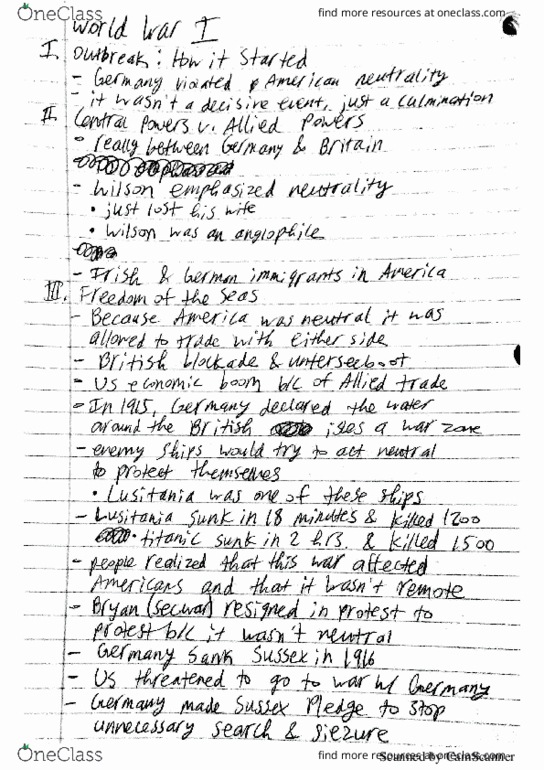 OneClass
find more resources at oneclass.com
World War I
I. Outbreak: How it Started
- Germany violated American neutrality
- it wasn't a decisive event, just a culmination
II. Central Powers v. Allied Powers
- really between Germany & Britain
- Wilson emphasized neutrality
• just lost his wife
• Wilson was an anglophile
- Irish & German immigrants in America
III. Freedom of the Seas
- Because America was neutral it was
allowed to trade with either side
- British blockade & unterseeboot
- US economic boom b/c of Allied trade
- In 1915, Germany declared the water
around the British isles a war zone
- enemy ships would try to act neutral
to protect themselves
• Lusitania was one of these ships
- Lusitania sunk in 18 minutes & killed 1200
• titanic sunk in 2 hrs. & killed 1500
- people realized that this war affected
Americans and that it wasn't remote
- Bryan (secwar) resigned in protest to
protest b/c it wasn't neutral
- Germany sank Sussex in 1916
- US threatened to go to war w/ Germany
- Germany made Sussex Pledge to stop
unnecessary search & siezure
OneClass
find more resources at oneclass.com
Scanned by CamScanner